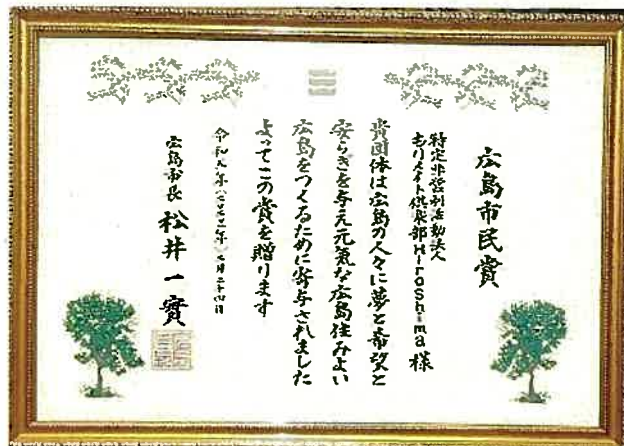 広島市民賞
特定非営利活動法人
もりメイト倶楽部Hiroshima 様
貴団体は広島の人々に夢と希望と
安らぎを与え元気な広島住みよい
広島をつくるために寄与されました
よってこの賞を贈ります
広島市長 松井一實